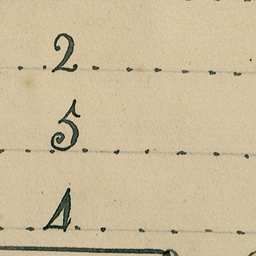 2
5
4